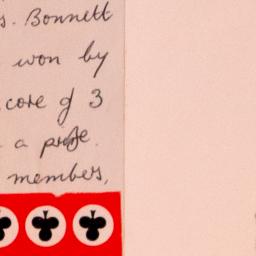 s. Bonnett
won by
core of 3
a prize.
members,